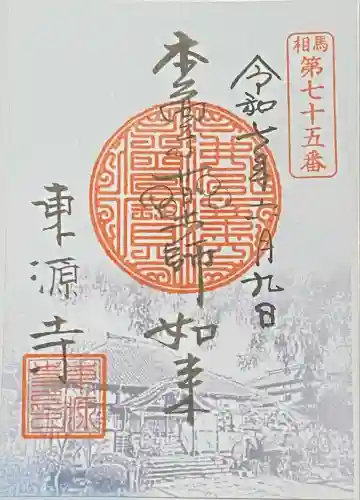 相馬
第七十五番
令和七年六月九日
本尊薬師如来
東源寺